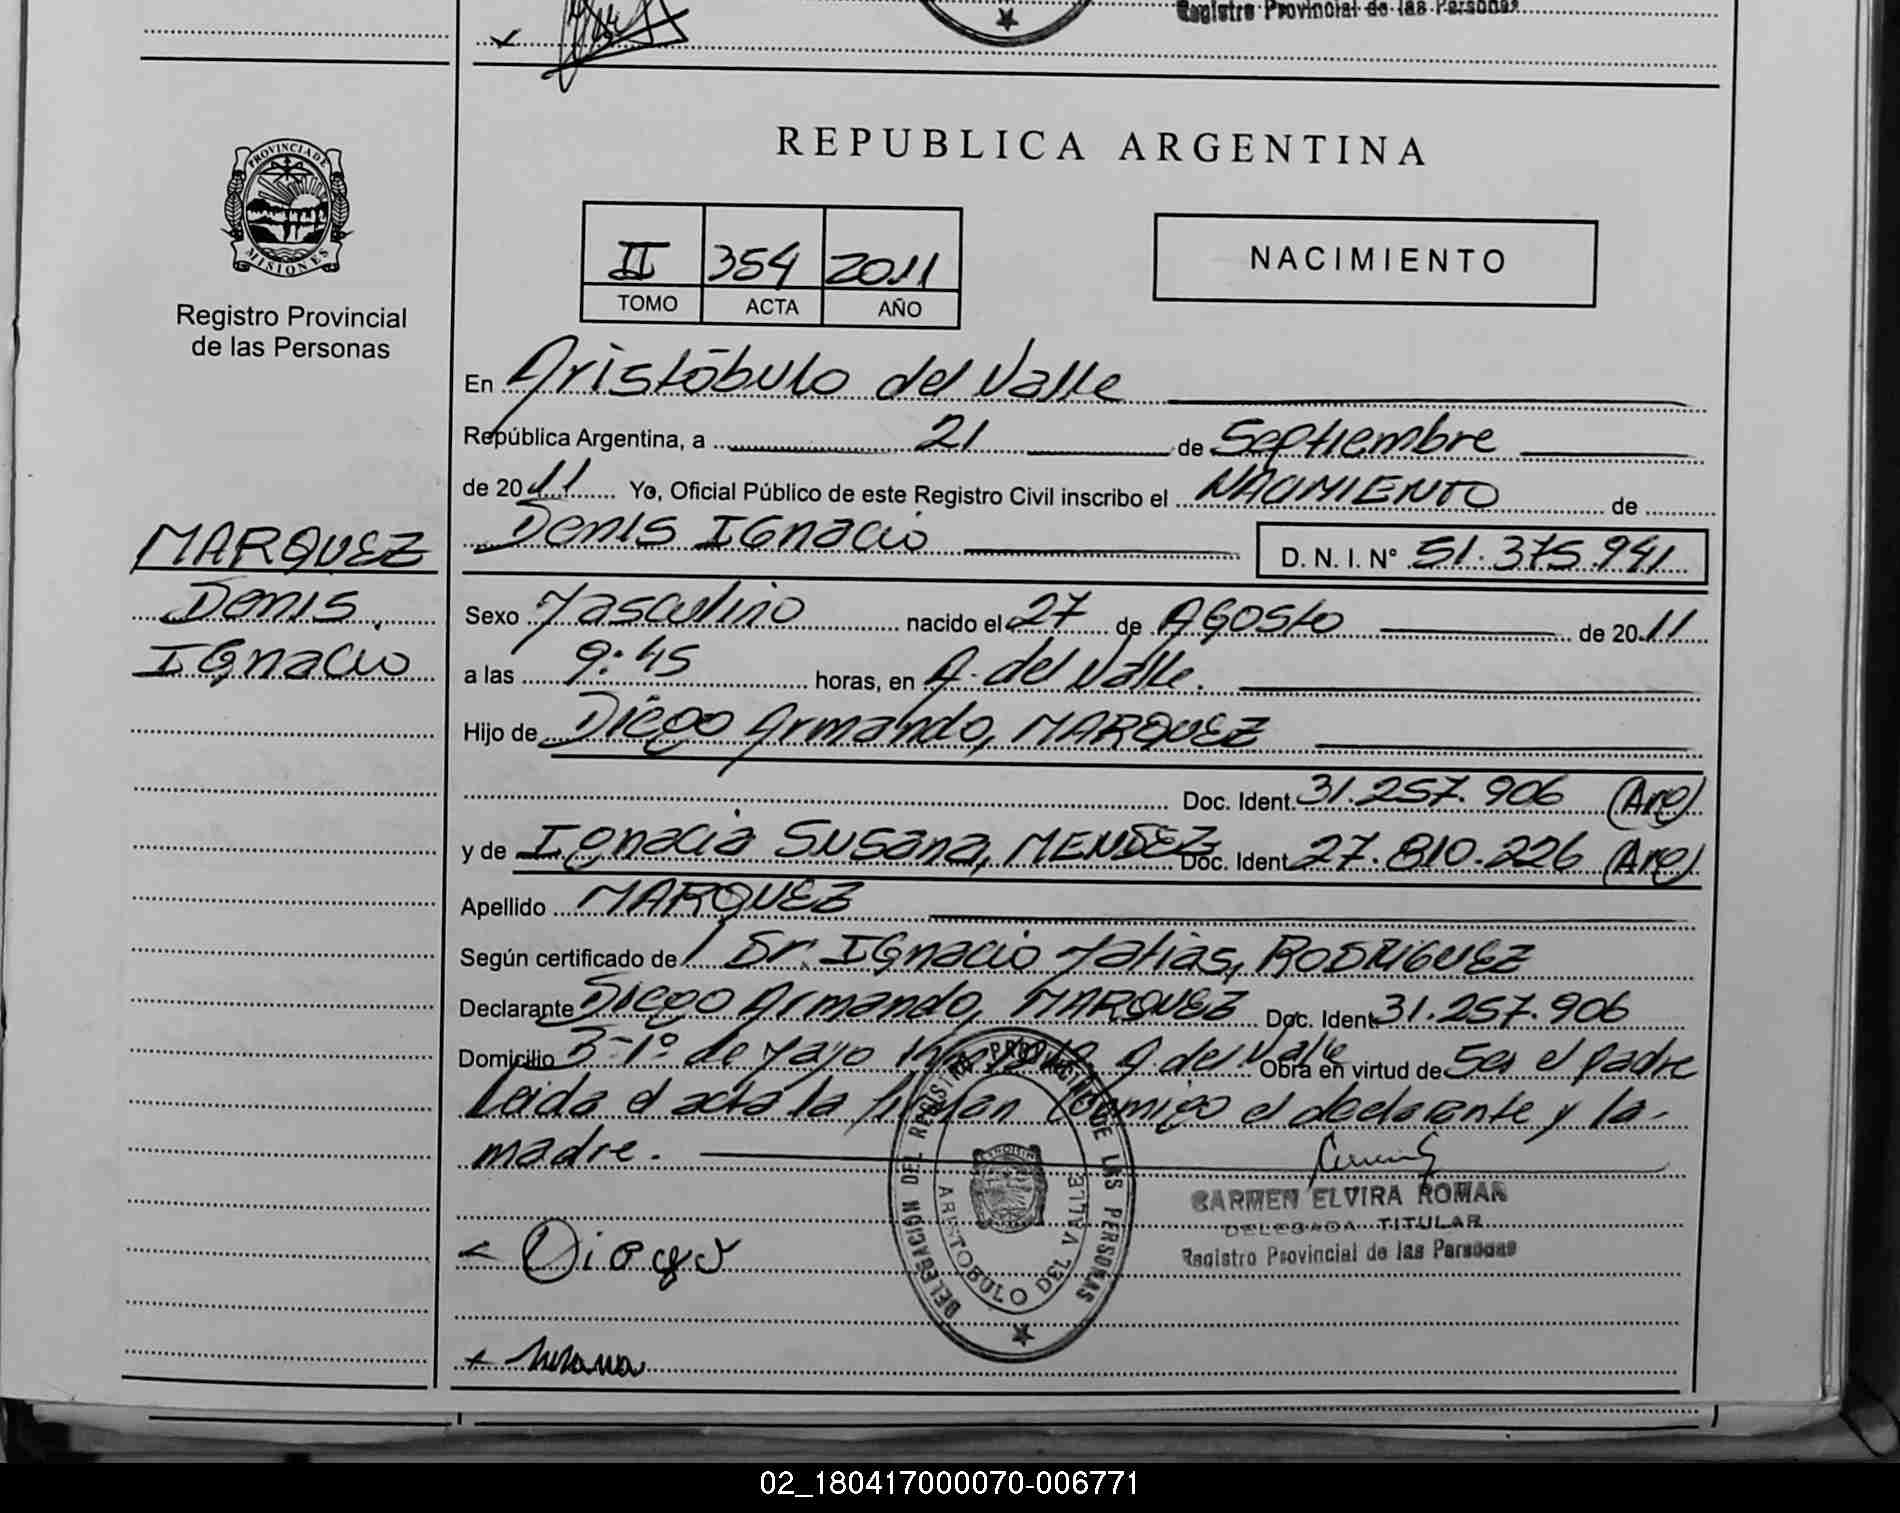 Registro Provincial de las Personas
REPUBLICA ARGENTINA
PROVINCIA DE
MISIONES
Registro Provincial
de las Personas
II 354 2011
TOMO ACTA AÑO
NACIMIENTO
En Aristóbulo del Valle
República Argentina, a 21 de Septiembre
de 2011 Yo, Oficial Público de este Registro Civil inscribo el NACIMIENTO de
Denis IGnacio D. N. I. N° 51.375.941
MARQUEZ
Denis
IGnacio
Sexo Masculino nacido el 27 de AGOSto de 2011
a las 9:45 horas, en A. del Valle.
Hijo de Diego Armando, MARQUEZ
Doc. Ident. 31.257.906 (Arg)
y de IGnacia Susana, MENDEZ Doc. Ident. 27.810.226 (Arg)
Apellido MARQUEZ
Según certificado de Dr. IGnacio Matias, RODRIGUEZ
Declarante Diego Armando, MARQUEZ Doc. Ident. 31.257.906
Domicilio B-1° de Mayo A. del Valle Obra en virtud de Ser el padre
Leida el acta la firman conmigo el declarante y la
madre.
CARMEN ELVIRA ROMAN
DELEGADA TITULAR
Registro Provincial de las Personas
DELEGACION DEL REGISTRO PROVINCIAL DE LAS PERSONAS
ARISTOBULO DEL VALLE
Diego
Susana
02_180417000070-006771